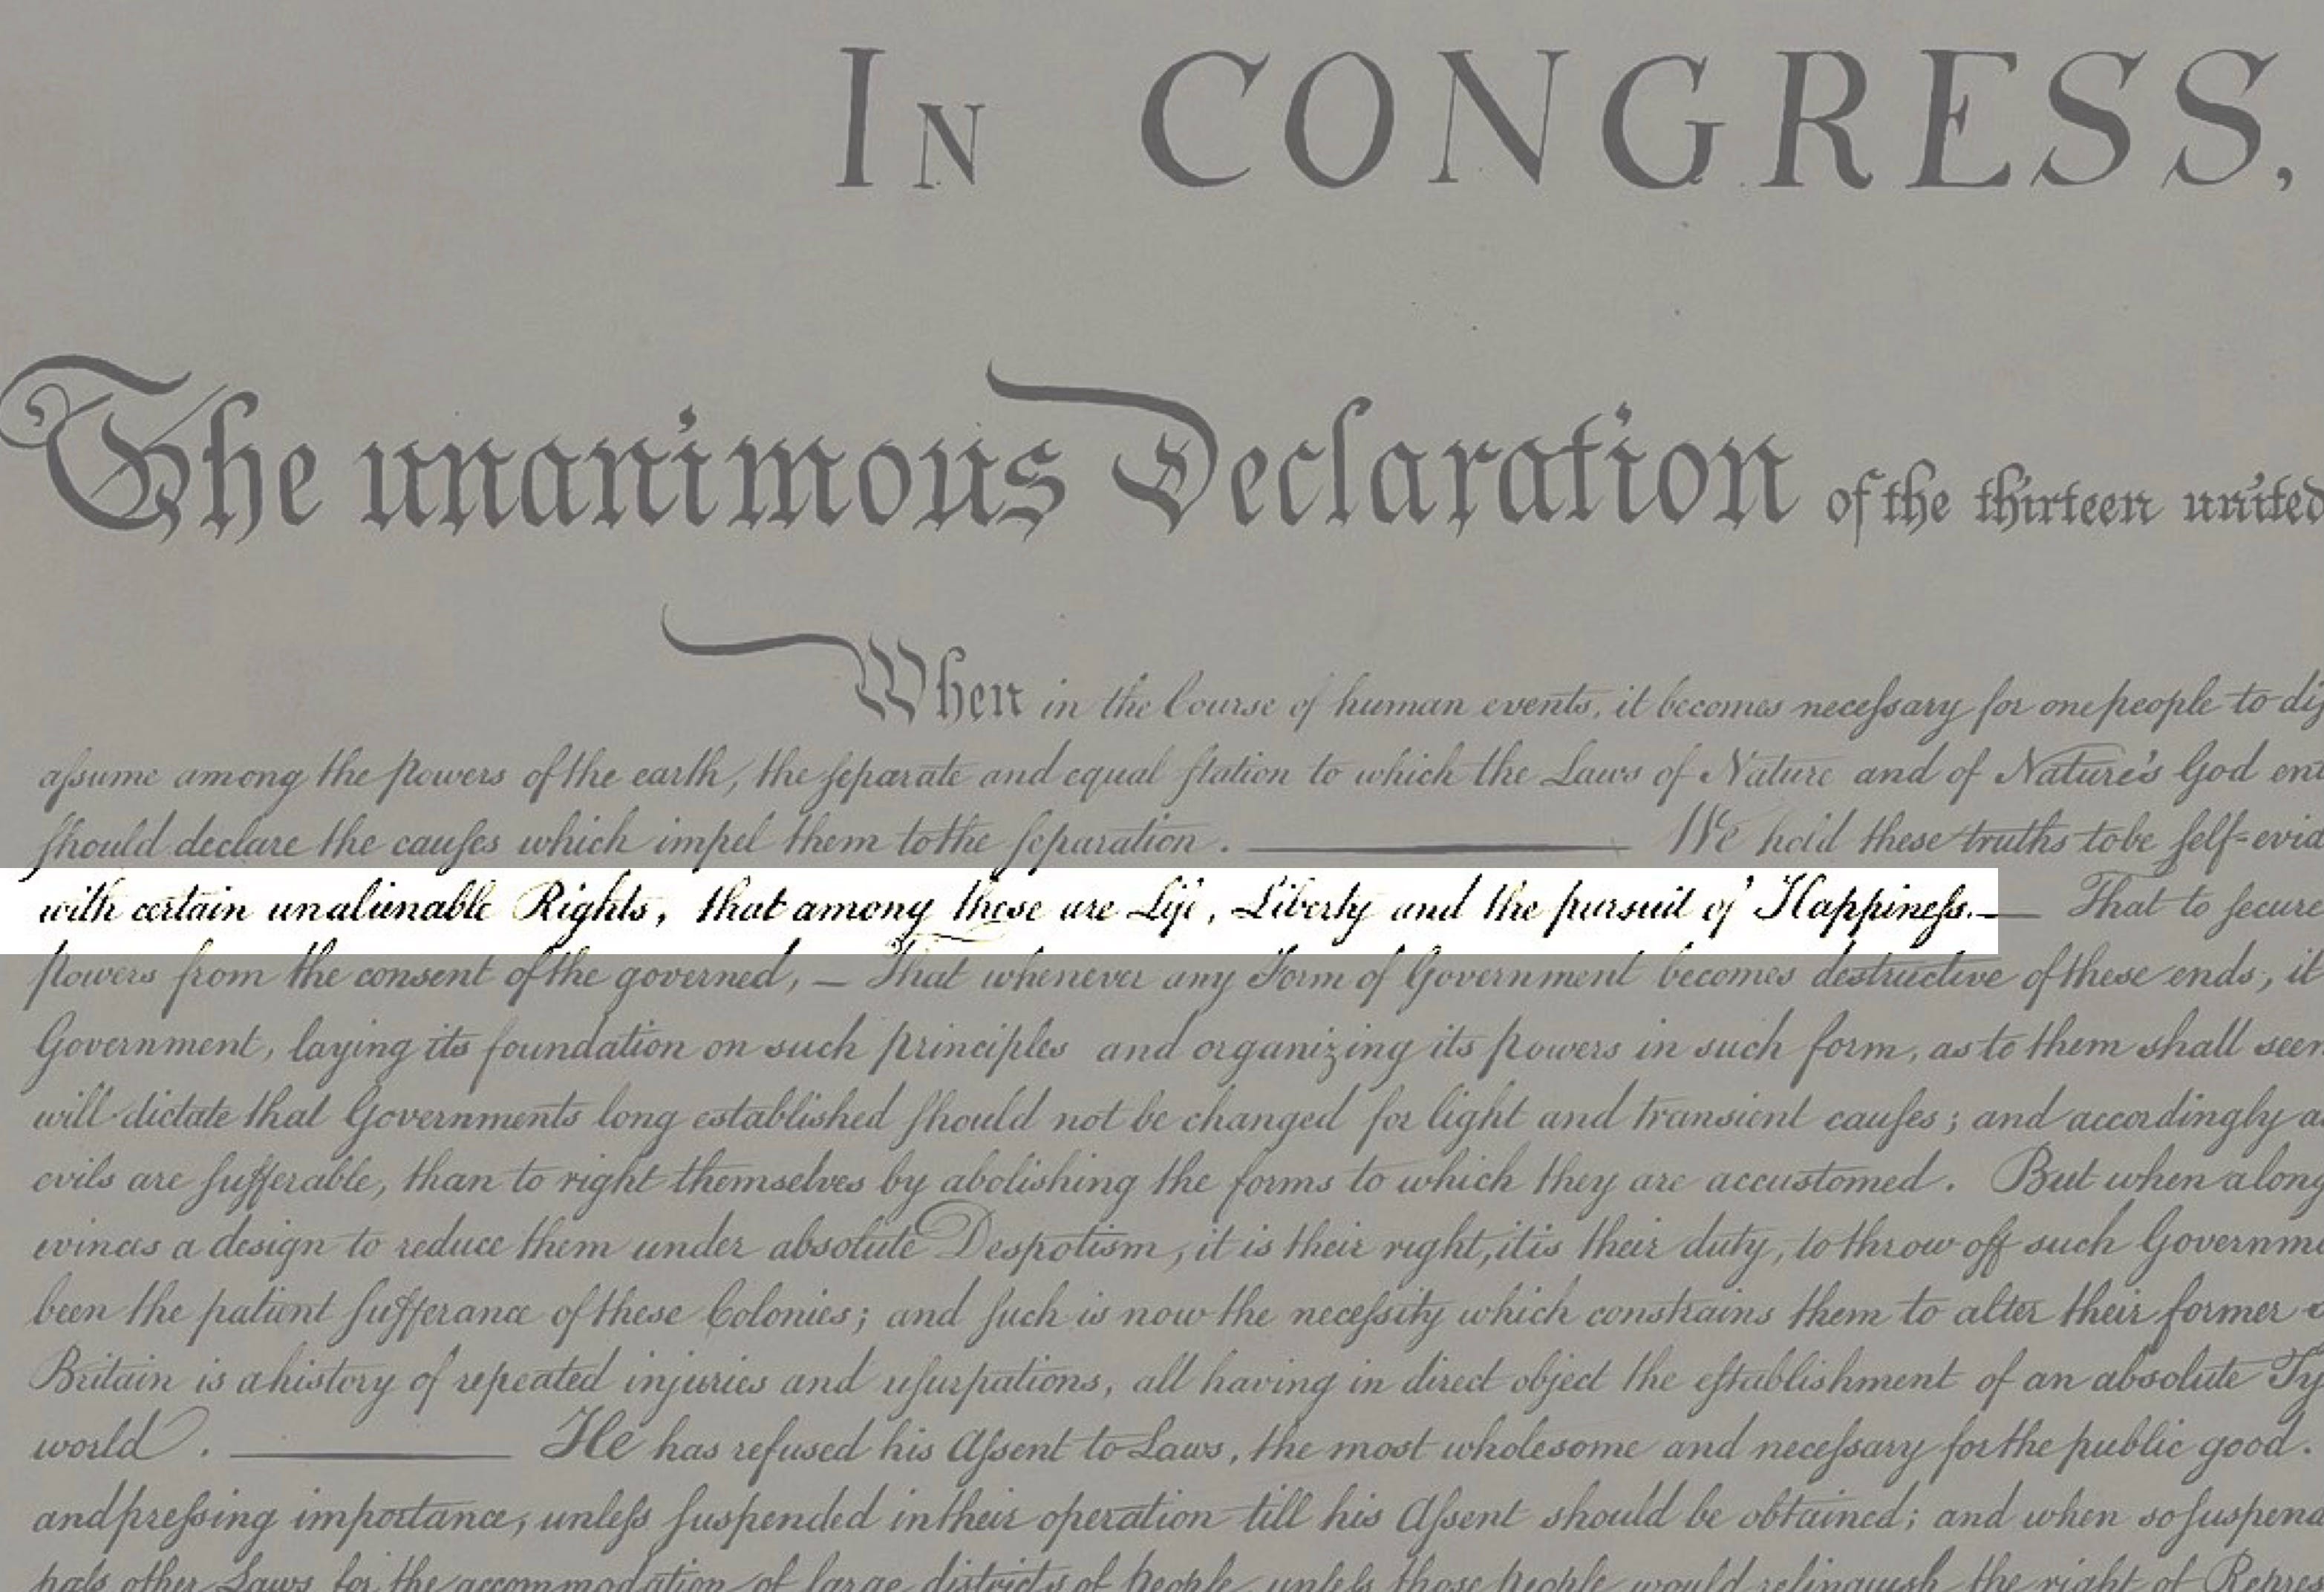 IN CONGRESS,
The unanimous Declaration of the thirteen united
When in the Course of human events, it becomes necessary for one people to dis
assume among the powers of the earth, the separate and equal station to which the Laws of Nature and of Nature's God ent
should declare the causes which impel them to the separation. ——— We hold these truths to be self-evid
with certain unalienable Rights, that among these are Life, Liberty and the pursuit of Happiness.— That to secure
powers from the consent of the governed, — That whenever any Form of Government becomes destructive of these ends, it
Government, laying its foundation on such principles and organizing its powers in such form, as to them shall seem
will dictate that Governments long established should not be changed for light and transient causes; and accordingly a
evils are sufferable, than to right themselves by abolishing the forms to which they are accustomed. But when a long
evinces a design to reduce them under absolute Despotism, it is their right, it is their duty, to throw off such Governme
been the patient sufferance of these Colonies; and such is now the necessity which constrains them to alter their former
Britain is a history of repeated injuries and usurpations, all having in direct object the establishment of an absolute Ty
world. ——— He has refused his Assent to Laws, the most wholesome and necessary for the public good.
and pressing importance, unless suspended in their operation till his Assent should be obtained; and when so suspend
pass other Laws for the accommodation of large districts of people, unless those people would relinquish the right of Repre